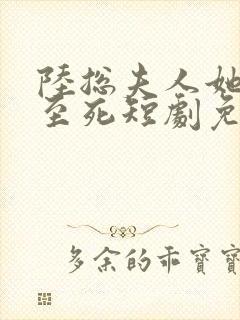 陸総夫人她
至死短劇免
多余的乖寶寶